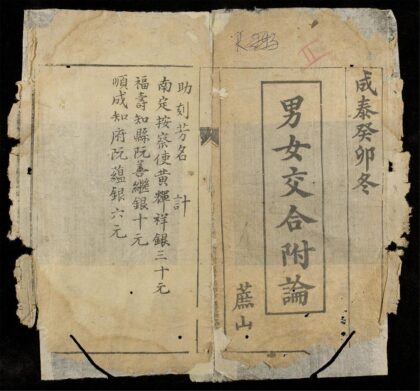 成泰癸卯冬
男女交合附論
蔗山
助刻芳名 計
南定按察使黃輝祥銀三十元
福壽知縣阮善繼銀十元
順成知府阮蘊銀六元